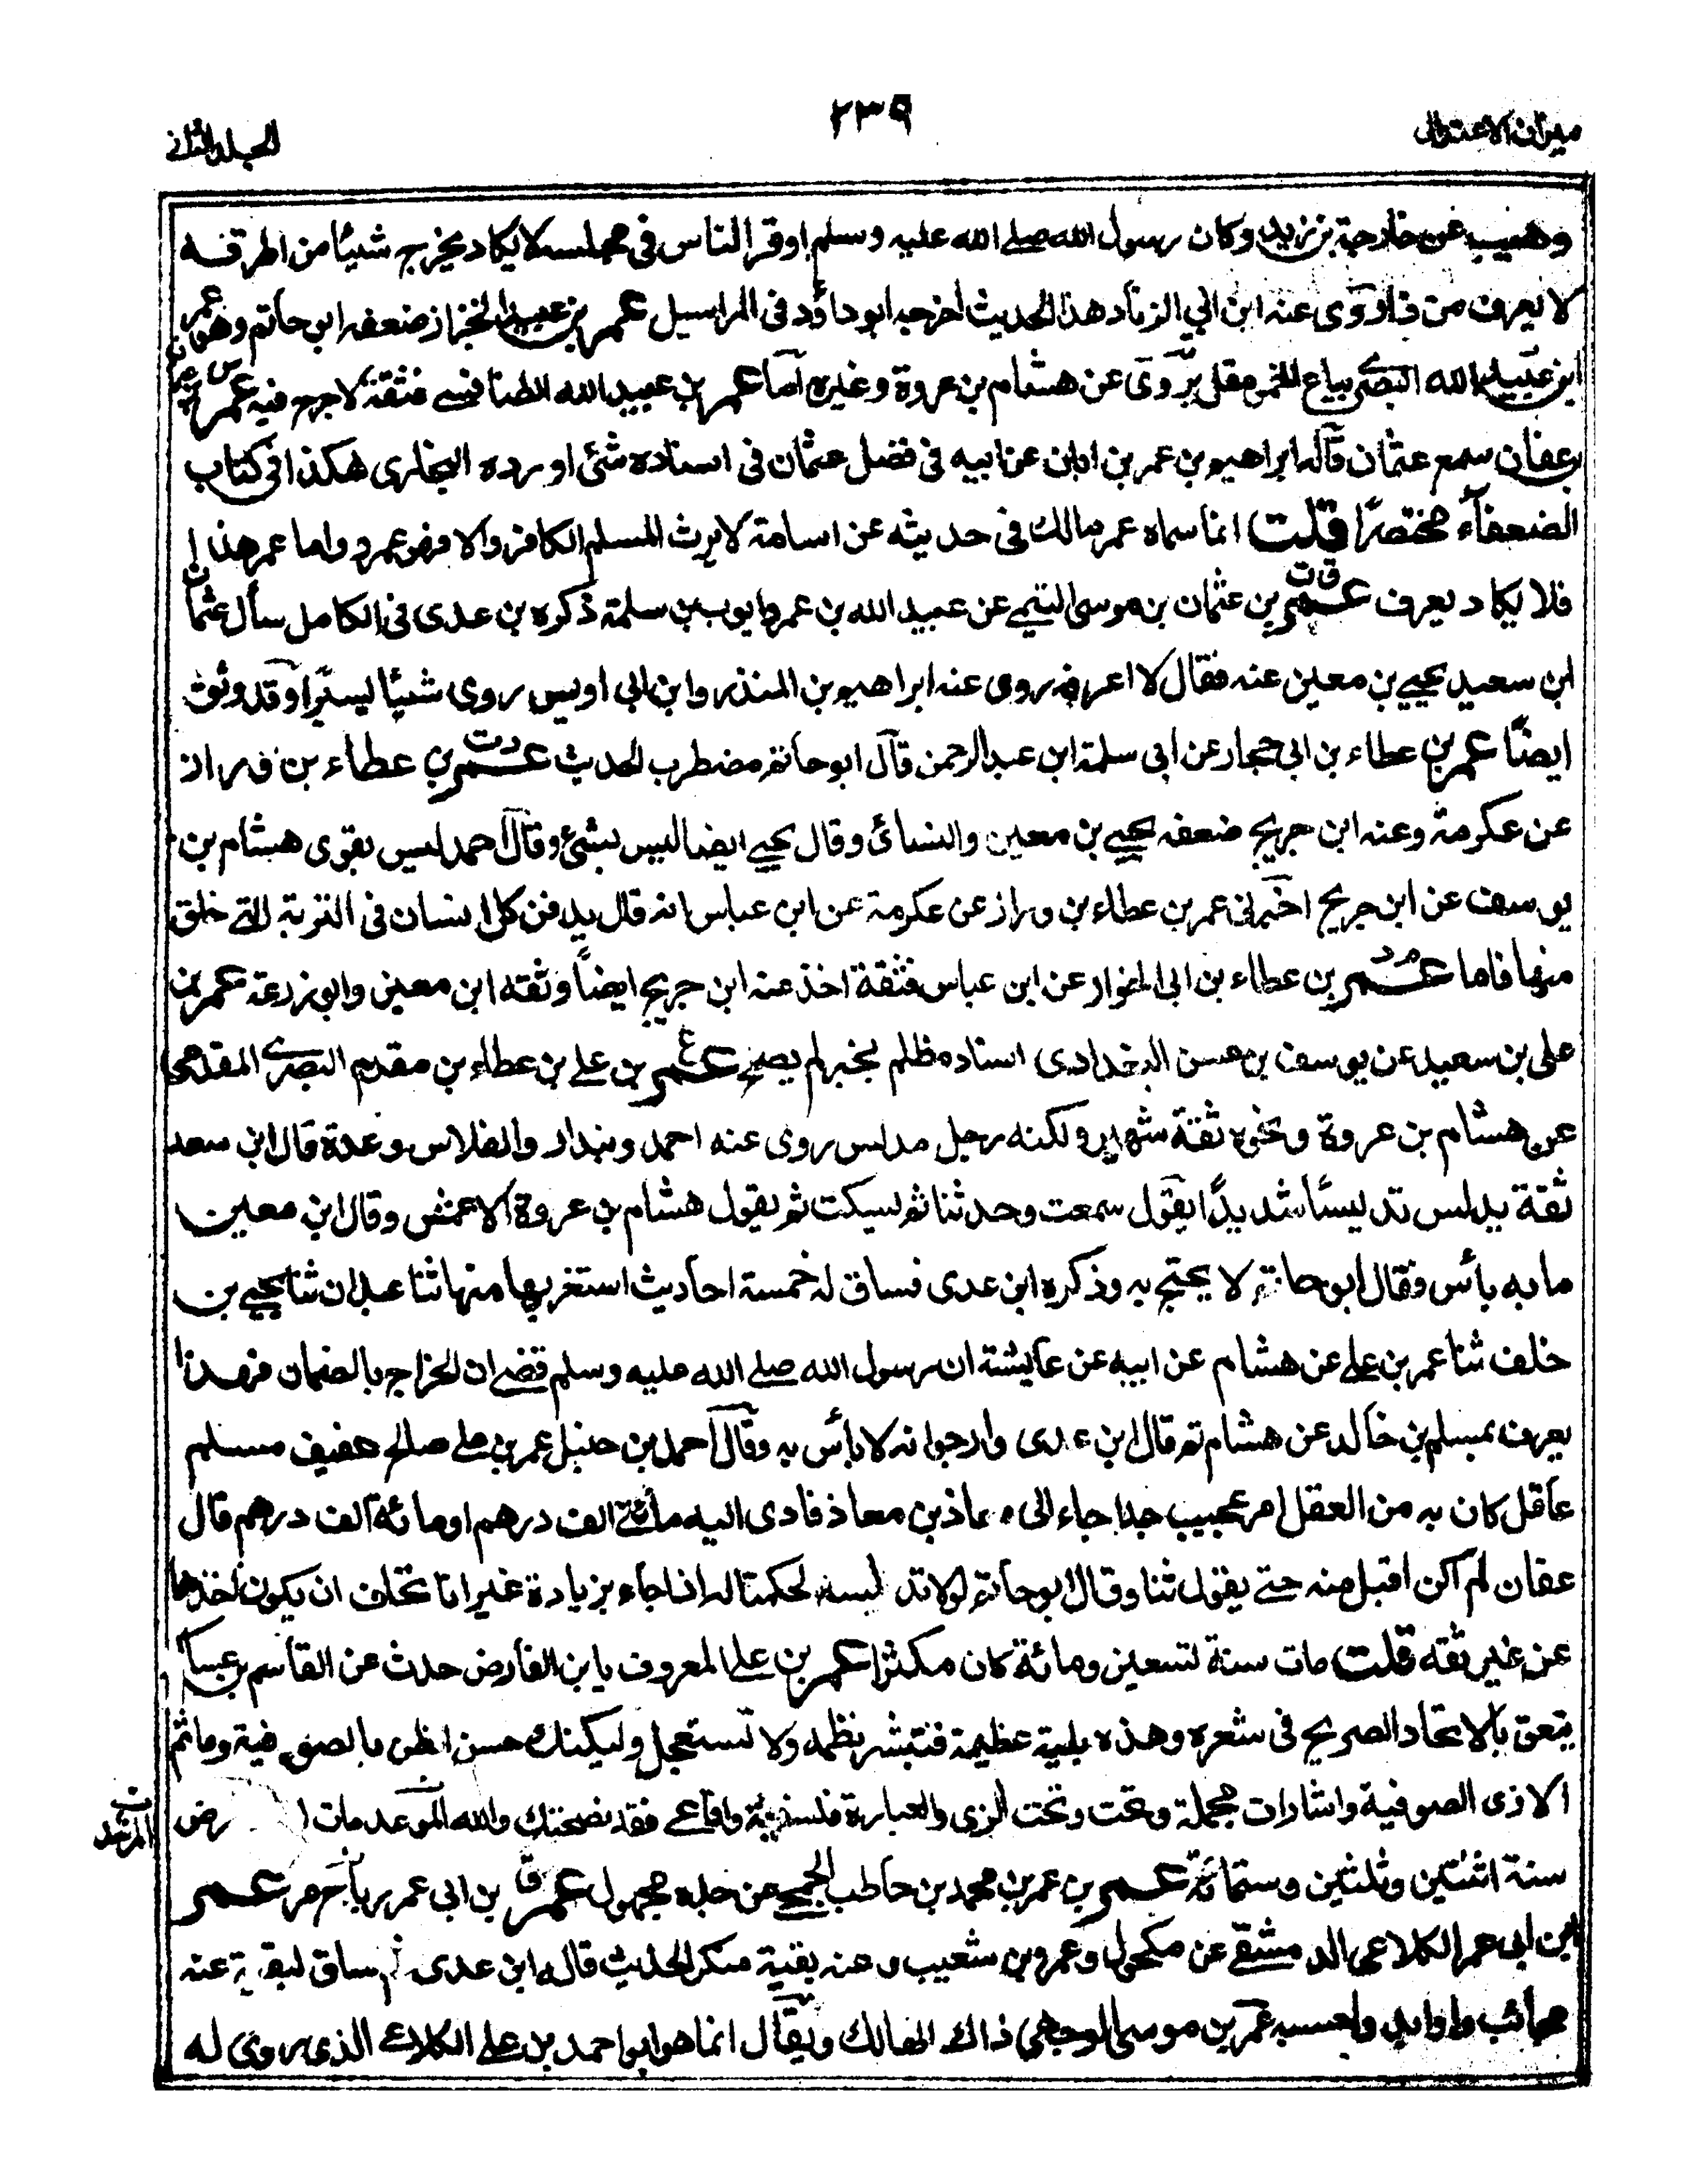 ميزان الاعتدال
٢٣٩
الجلد الثاني
وهيب عن خارجة بن زيد وكان رسول الله صلى الله عليه وسلم اوقر الناس في مجلسه لا يكاد يخرج شيئا من اطرافه
لا يعرف من ذا روى عنه ابن ابي الزناد هذا الحديث اخرجه ابو داؤد في المراسيل عمر بن عبيد الخزاز ضعفه ابو حاتم وهو عمر
ابن عبيد الله البصري بياع الخمر مقل روى عن هشام بن عروة وغيره اما عمر بن عبيد الله الطنافسي فثقة لا جرح فيه عمر بن
عفان سمع عثمان قاله ابراهيم بن عمر بن ابان عن ابيه في فضل عثمان في اسناده شئ اورده البخاري هكذا في كتاب
الضعفاء مختصرا قلت انما سماه عمر مالك في حديثه عن اسامة لا يرث المسلم الكافر والا فهو عمرو واما عمر هذا
فلا يكاد يعرف عمر بن عثمان بن موسى التيمي عن عبيد الله بن عمر وايوب بن سلمة ذكره بن عدي في الكامل سأل عثمان
ابن سعيد يحيى بن معين عنه فقال لا اعرفه روى عنه ابراهيم بن المنذر وابن ابي اويس روى شيئا يسيرا وقد وثق
ايضا عمر بن عطاء بن ابي حجار عن ابي سلمة ابن عبد الرحمن قال ابو حاتم مضطرب الحديث عمر بن عطاء بن وراز
عن عكرمة وعنه ابن جريج ضعفه يحيى بن معين والنسائي وقال يحيى ايضا ليس بشئ وقال احمد ليس بقوى هشام بن
يوسف عن ابن جريج اخبرني عمر بن عطاء بن وراز عن عكرمة عن ابن عباس انه قال يدفن كل انسان في التربة التي خلق
منها فاما عمر بن عطاء بن ابي الخوار عن ابن عباس فثقة اخذ عنه ابن جريج ايضا وثقه ابن معين وابو زرعة عمر بن
علي بن سعيد عن يوسف بن حسن البغدادي اسناده مظلم بخبر لم يصح عمر بن علي بن عطاء بن مقدم البصري المقدمي
عن هشام بن عروة ونحوه ثقة شهير ولكنه رجل مدلس روى عنه احمد وبندار والفلاس وعدة قال ابن سعد
ثقة يدلس تدليسا شديدا يقول سمعت وحدثنا ثم يسكت ثم يقول هشام بن عروة الاعمش وقال ابن معين
ما به بأس وقال ابو حاتم لا يحتج به وذكره ابن عدي فساق له خمسة احاديث استغربها منها ثنا عبدان ثنا يحيى بن
خلف ثنا عمر بن علي عن هشام عن ابيه عن عايشة ان رسول الله صلى الله عليه وسلم قضى ان الخراج بالضمان فهذا
يعرف بمسلم بن خالد عن هشام ثم قال ابن عدي وارجو انه لا بأس به وقال احمد بن حنبل عمر بن علي صالح عفيف مسلم
عاقل كان به من العقل امر عجيب جدا جاء الى معاذ بن معاذ فادى اليه مائتي الف درهم او مائة الف درهم قال
عفان لم اكن اقبل منه حتى يقول ثنا وقال ابو حاتم لولا تدليسه لحكمنا له اذا جاء بزيادة غير انا نخاف ان يكون اخذها
عن غير ثقة قلت مات سنة تسعين ومائة كان مكثرا عمر بن علي المعروف بابن الفارض حدث عن القاسم بن عساكر
ينعق بالاتحاد الصريح في شعره وهذه بلية عظيمة فتبشر نظمه ولا تستعجل وليكنك حسن الظن بالصوفية وما ثم
الا ذى الصوفية واشارات مجملة وتحت وتحت الزى والعبارة فلسفة وافاعي فقد نصحتك والله الموعد مات
سنة اثنتين وثلثين وستمائة عمر بن عمر بن محمد بن حاطب الجمحي عن جده مجهول عمر بن ابي عمر رباح مر عمر
ابن ابي عمر الكلاعي الدمشقي عن مكحول وعمرو بن شعيب وعنه بقية منكر الحديث قاله ابن عدي ثم ساق لبقية عنه
عجائب واوابد واحسبه عمر بن موسى الوجيهي ذاك الهالك ويقال انما هو ابو احمد بن علي الكلاعي الذي روى له